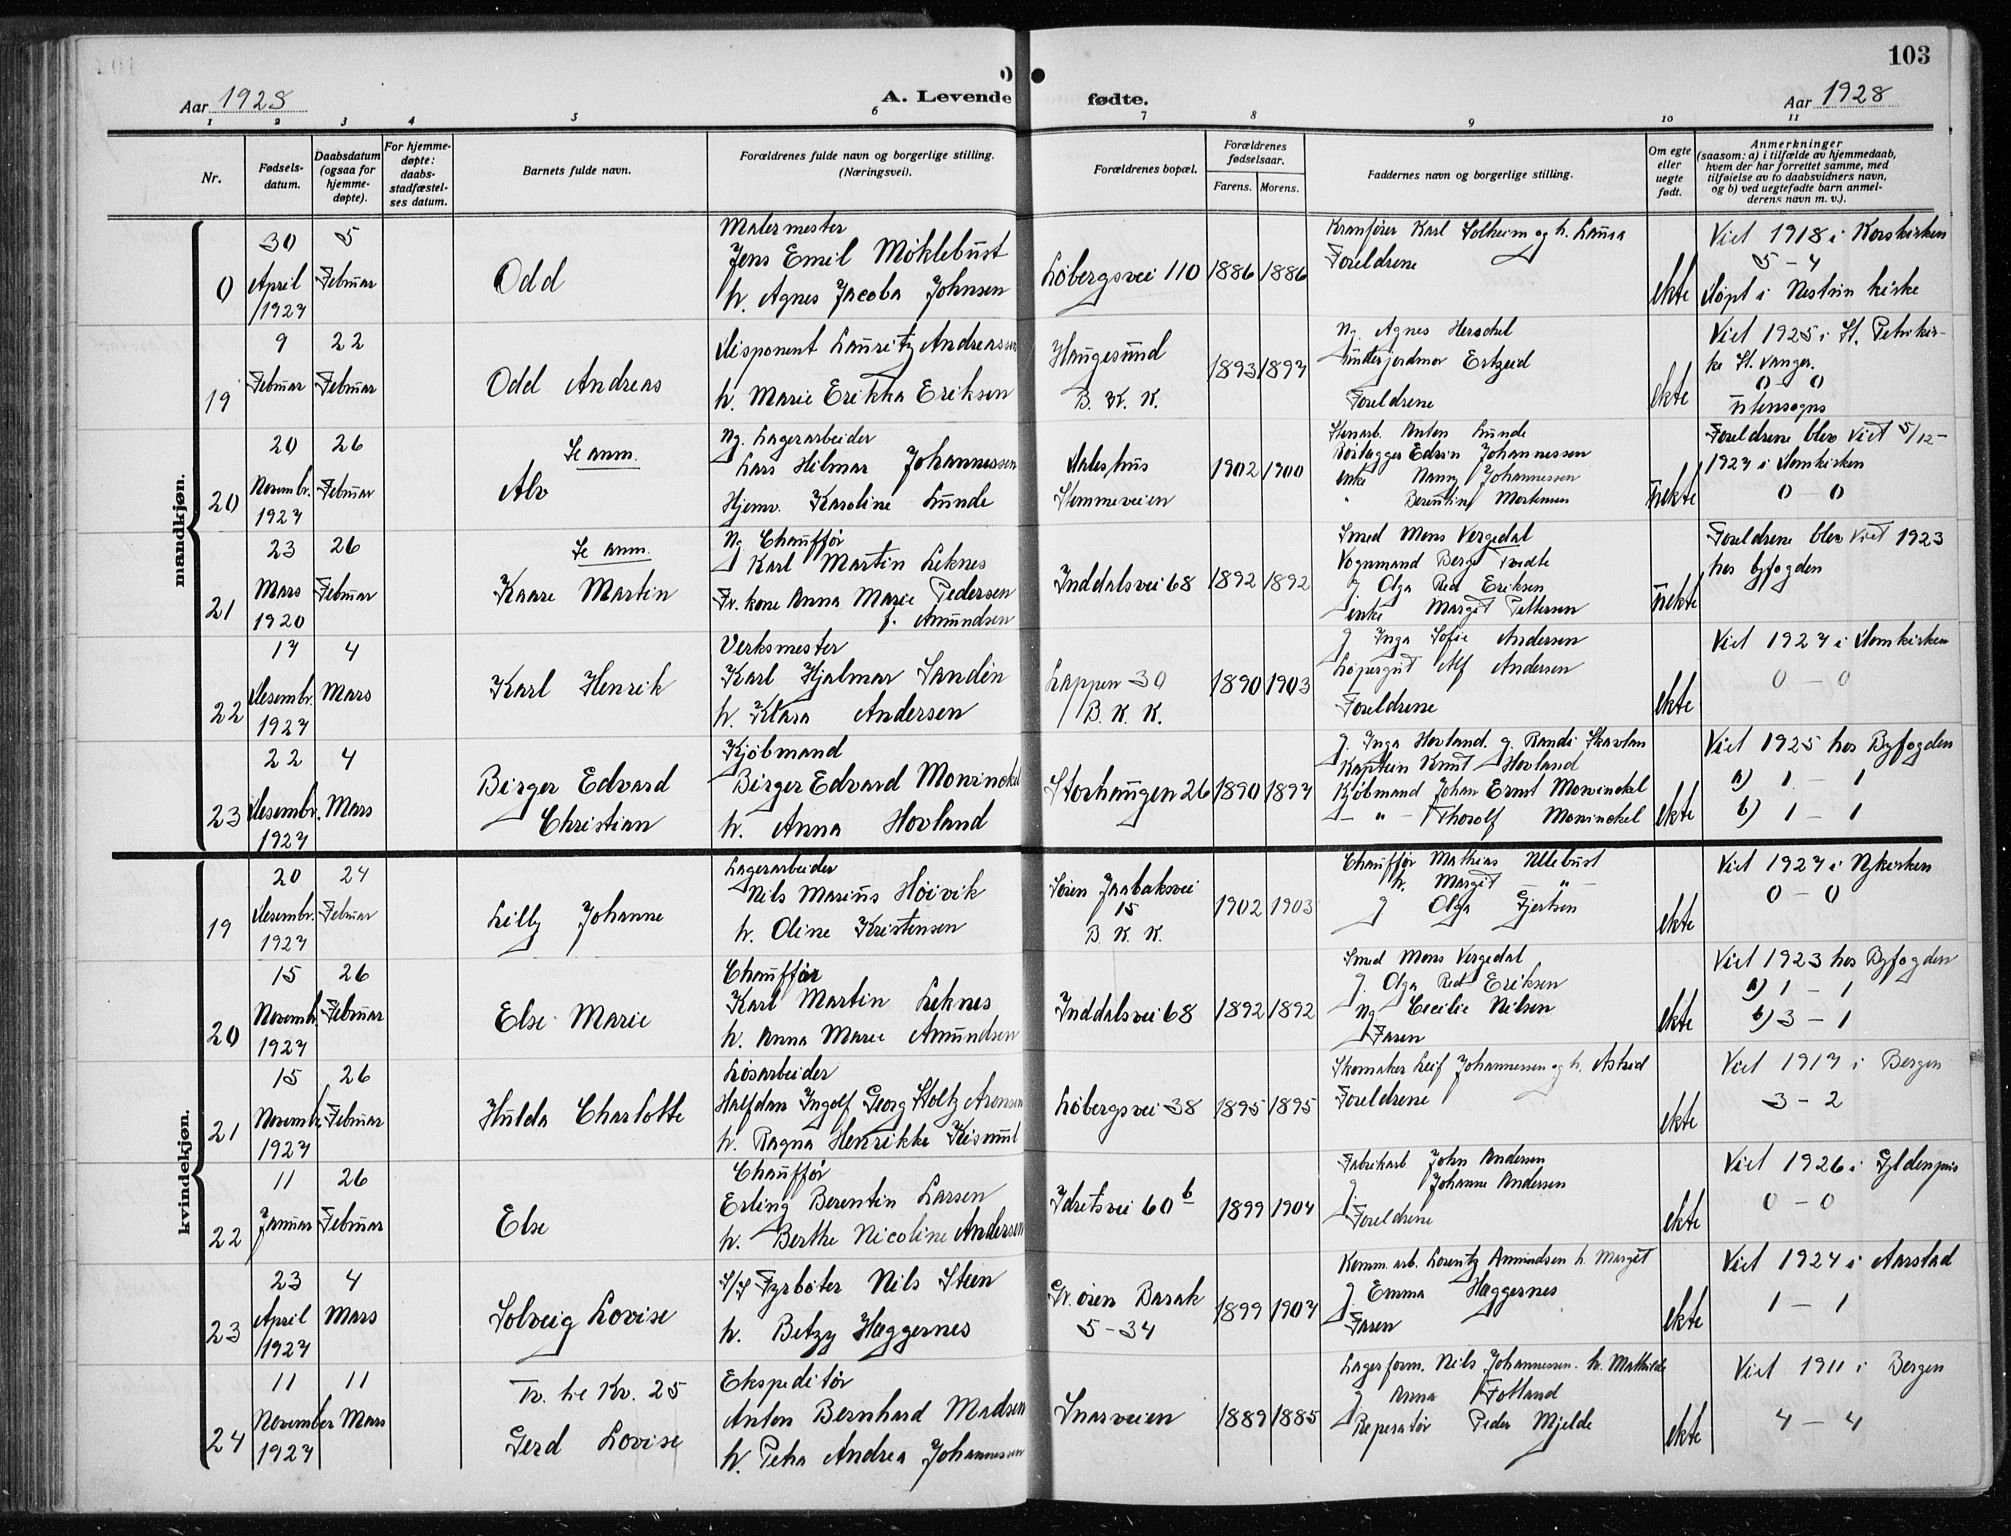 103
Aar 1928
A. Levende fødte.
Aar 1928
1 2 3 4 5 6 7 8 9 10 11
Nr.
Fødsels-
datum.
Daabsdatum
(ogsaa for
hjemme-
døpte).
For hjemme-
døpte:
daabs-
stadfæstel-
ses datum.
Barnets fulde navn.
Forældrenes fulde navn og borgerlige stilling.
(Næringsvei).
Forældrenes bopæl.
Forældrenes
fødselsaar.
Farens. Morens.
Faddernes navn og borgerlige stilling.
Om egte
eller
uegte
født.
Anmerkninger
(saasom: a) i tilfælde av hjemmedaab,
hvem der har forrettet samme, med
tilføielse av to daabsvidners navn,
og b) ved uegtefødte barn anmel-
derens navn m. v.).
mandkjøn.
0
30
April
1927
5
Februar
Odd
Malermester
Jens Emil Møklebust
h. Agnes Jacoba Johnsen
Løbergsvei 110
1886 1886
Kranfører Karl Solheim og h. Laura
Foreldrene
ekte
Viet 1918 i Korskirken
5 - 4
Døpt i Nestun kirke
19
9
Februar
22
Februar
Odd Andreas
Disponent Lauritz Andreassen
h. Marie Erikka Eriksen
Haugesund
B. K. K.
1893 1897
Ng. Agnes Herschel
Underjordmor Ertzeid
Foreldrene
ekte
Viet 1925 i St. Petrikir-
ke St.vanger.
0 0
Utensogns
20
20
Novembr.
1927
26
Februar
Se anm.
Alv
Ng. Lagerarbeider
Lars Hilmar Johannessen
Hjemv. Karoline Lunde
Daleshus
Stemmeveien
1902 1900
Stenarb. Anton Lunde
Rørlegger Edvin Johannessen
enke Nanny Johannessen
" Berentine Mortensen
Uekte
Foreldrene blev viet 5/12-
1927 i Domkirken
0 - 0
21
23
Mars
1920
26
Februar
Se anm.
Kaare Martin
Ng Chauffør
Karl Martin Leknes
Fr. kone Anna Marie Pedersen
f. Amundsen
Inddalsvei 68
1892 1892
Smed Mons Vergedal
Vognmand Berge Tvedte
J. Olga Red Eriksen
enke Margit Pettersen
Uekte
Foreldrene blev viet 1923
hos byfogden
22
17
Desembr.
1927
4
Mars
Karl Henrik
Verksmester
Karl Hjalmar Sandin
h. Klara Andersen
Lappen 30
B. K. K.
1890 1903
J Inga Sofie Andersen
Løpergut Alf Andersen
Foreldrene
ekte
Viet 1927 i Domkirken
0 - 0
23
22
Desembr.
1927
4
Mars
Birger Edvard
Christian
Kjøbmand
Birger Edvard Monvinckel
h. Anna Hovland
Storhaugen 26
1890 1897
J. Inga Hovland. g. Randi Skavlan
Kaptein Knut Hovland
Købmand Johan Ernst Monvinckel
— " — Thorolf Monvinckel
ekte
Viet 1925 hos Byfogden
a) 1 - 1
b) 1 - 1
kvindekjøn.
19
20
Desembr.
1927
24
Februar
Lilly Johanne
Lagerarbeider
Nils Marius Høivik
h. Oline Kristensen
Søren Jaabaksvei
15
B. K. K.
1902 1903
Chauffør Mathias Ullebust
h. Margit — " —
J Olga Gjertsen
ekte
Viet 1927 i Nykirken
0 - 0
20
15
Novembr.
1927
26
Februar
Else Marie
Chauffør
Karl Martin Leknes
h. Anna Marie Amundsen
Inddalsvei 68
1892 1892
Smed Mons Vergedal
J. Olga Red Eriksen
Ng Cecilie Nilsen
Faren
ekte
Viet 1923 hos Byfogden
a) 1 - 1
b) 3 - 1
21
15
Novembr.
1927
26
Februar
Hulda Charlotte
Løsarbeider
Halfdan Ingolf Georg Stoltz Arensen
h. Ragna Henrikke Kismul
Løbergsvei 38
1895 1895
Skomaker Leif Johannessen og h. Astrid
Foreldrene
ekte
Viet 1917 i Bergen
3 - 2
22
11
Januar
26
Februar
Else
Chauffør
Erling Berentin Larsen
h. Berthe Nicoline Andersen
Idretsvei 60 b
1899 1904
Fabrikarb John Andersen
J Johanne Andersen
Foreldrene
ekte
Viet 1926 i Gyldenpris
0 - 0
23
23
April
1927
4
Mars
Solveig Lovise
S/S Fyrbøter Nils Steen
h. Betzy Hæggernes
Gr. øren Barak
5 - 34
1899 1907
Komm. arb. Lorentz Amundsen h. Margit
J. Emma Hæggernes
Faren
ekte
Viet 1924 i Aarstad
1 - 1
24
11
November
1927
11
Mars
Tv. se Kv. 25
Gerd Lovise
Ekspeditør
Anton Bernhard Madsen
h. Petra Andrea Johannessen
Snarveien
1889 1885
Lagerform. Nils Johannessen. h. Mathilde
J. Anna Totland
Reperatør Peder Mjelde
ekte
Viet 1911 i Bergen
4 - 4